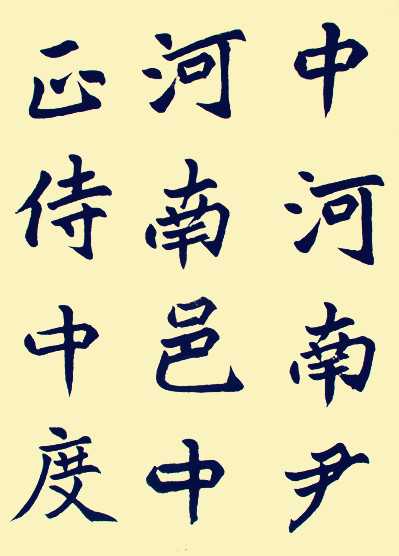 中河南尹
河南邑中
正侍中度